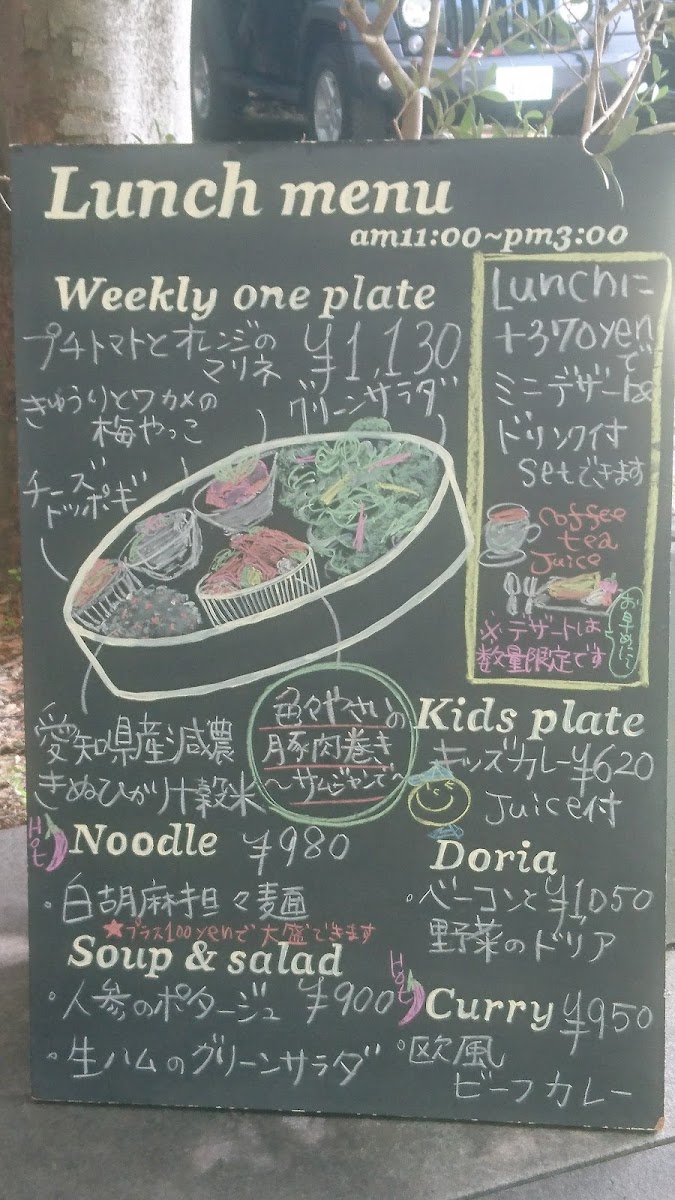 Lunch menu
am11:00~pm3:00
Weekly one plate
プチトマトとオレンジの
マリネ
¥1,130
きゅうりとワカメの
梅やっこ
グリーンサラダ
チーズ
トッポギ
愛知県産減農
きぬひかり十穀米
色々やさいの
豚肉巻き
~サムジャンで~
Lunchに
+370yen
で
ミニデザート&
ドリンク付
setできます
coffee
tea
Juice
※デザートは
数量限定です
お早めに…
Kids plate
キッズカレー¥620
Juice付
Hot
Noodle ¥980
・白胡麻担々麺
★プラス100yenで大盛できます
Doria
・ベーコンと ¥1050
野菜のドリア
Soup & salad
・人参のポタージュ ¥900
・生ハムのグリーンサラダ
Hot
Curry ¥950
・欧風
ビーフカレー